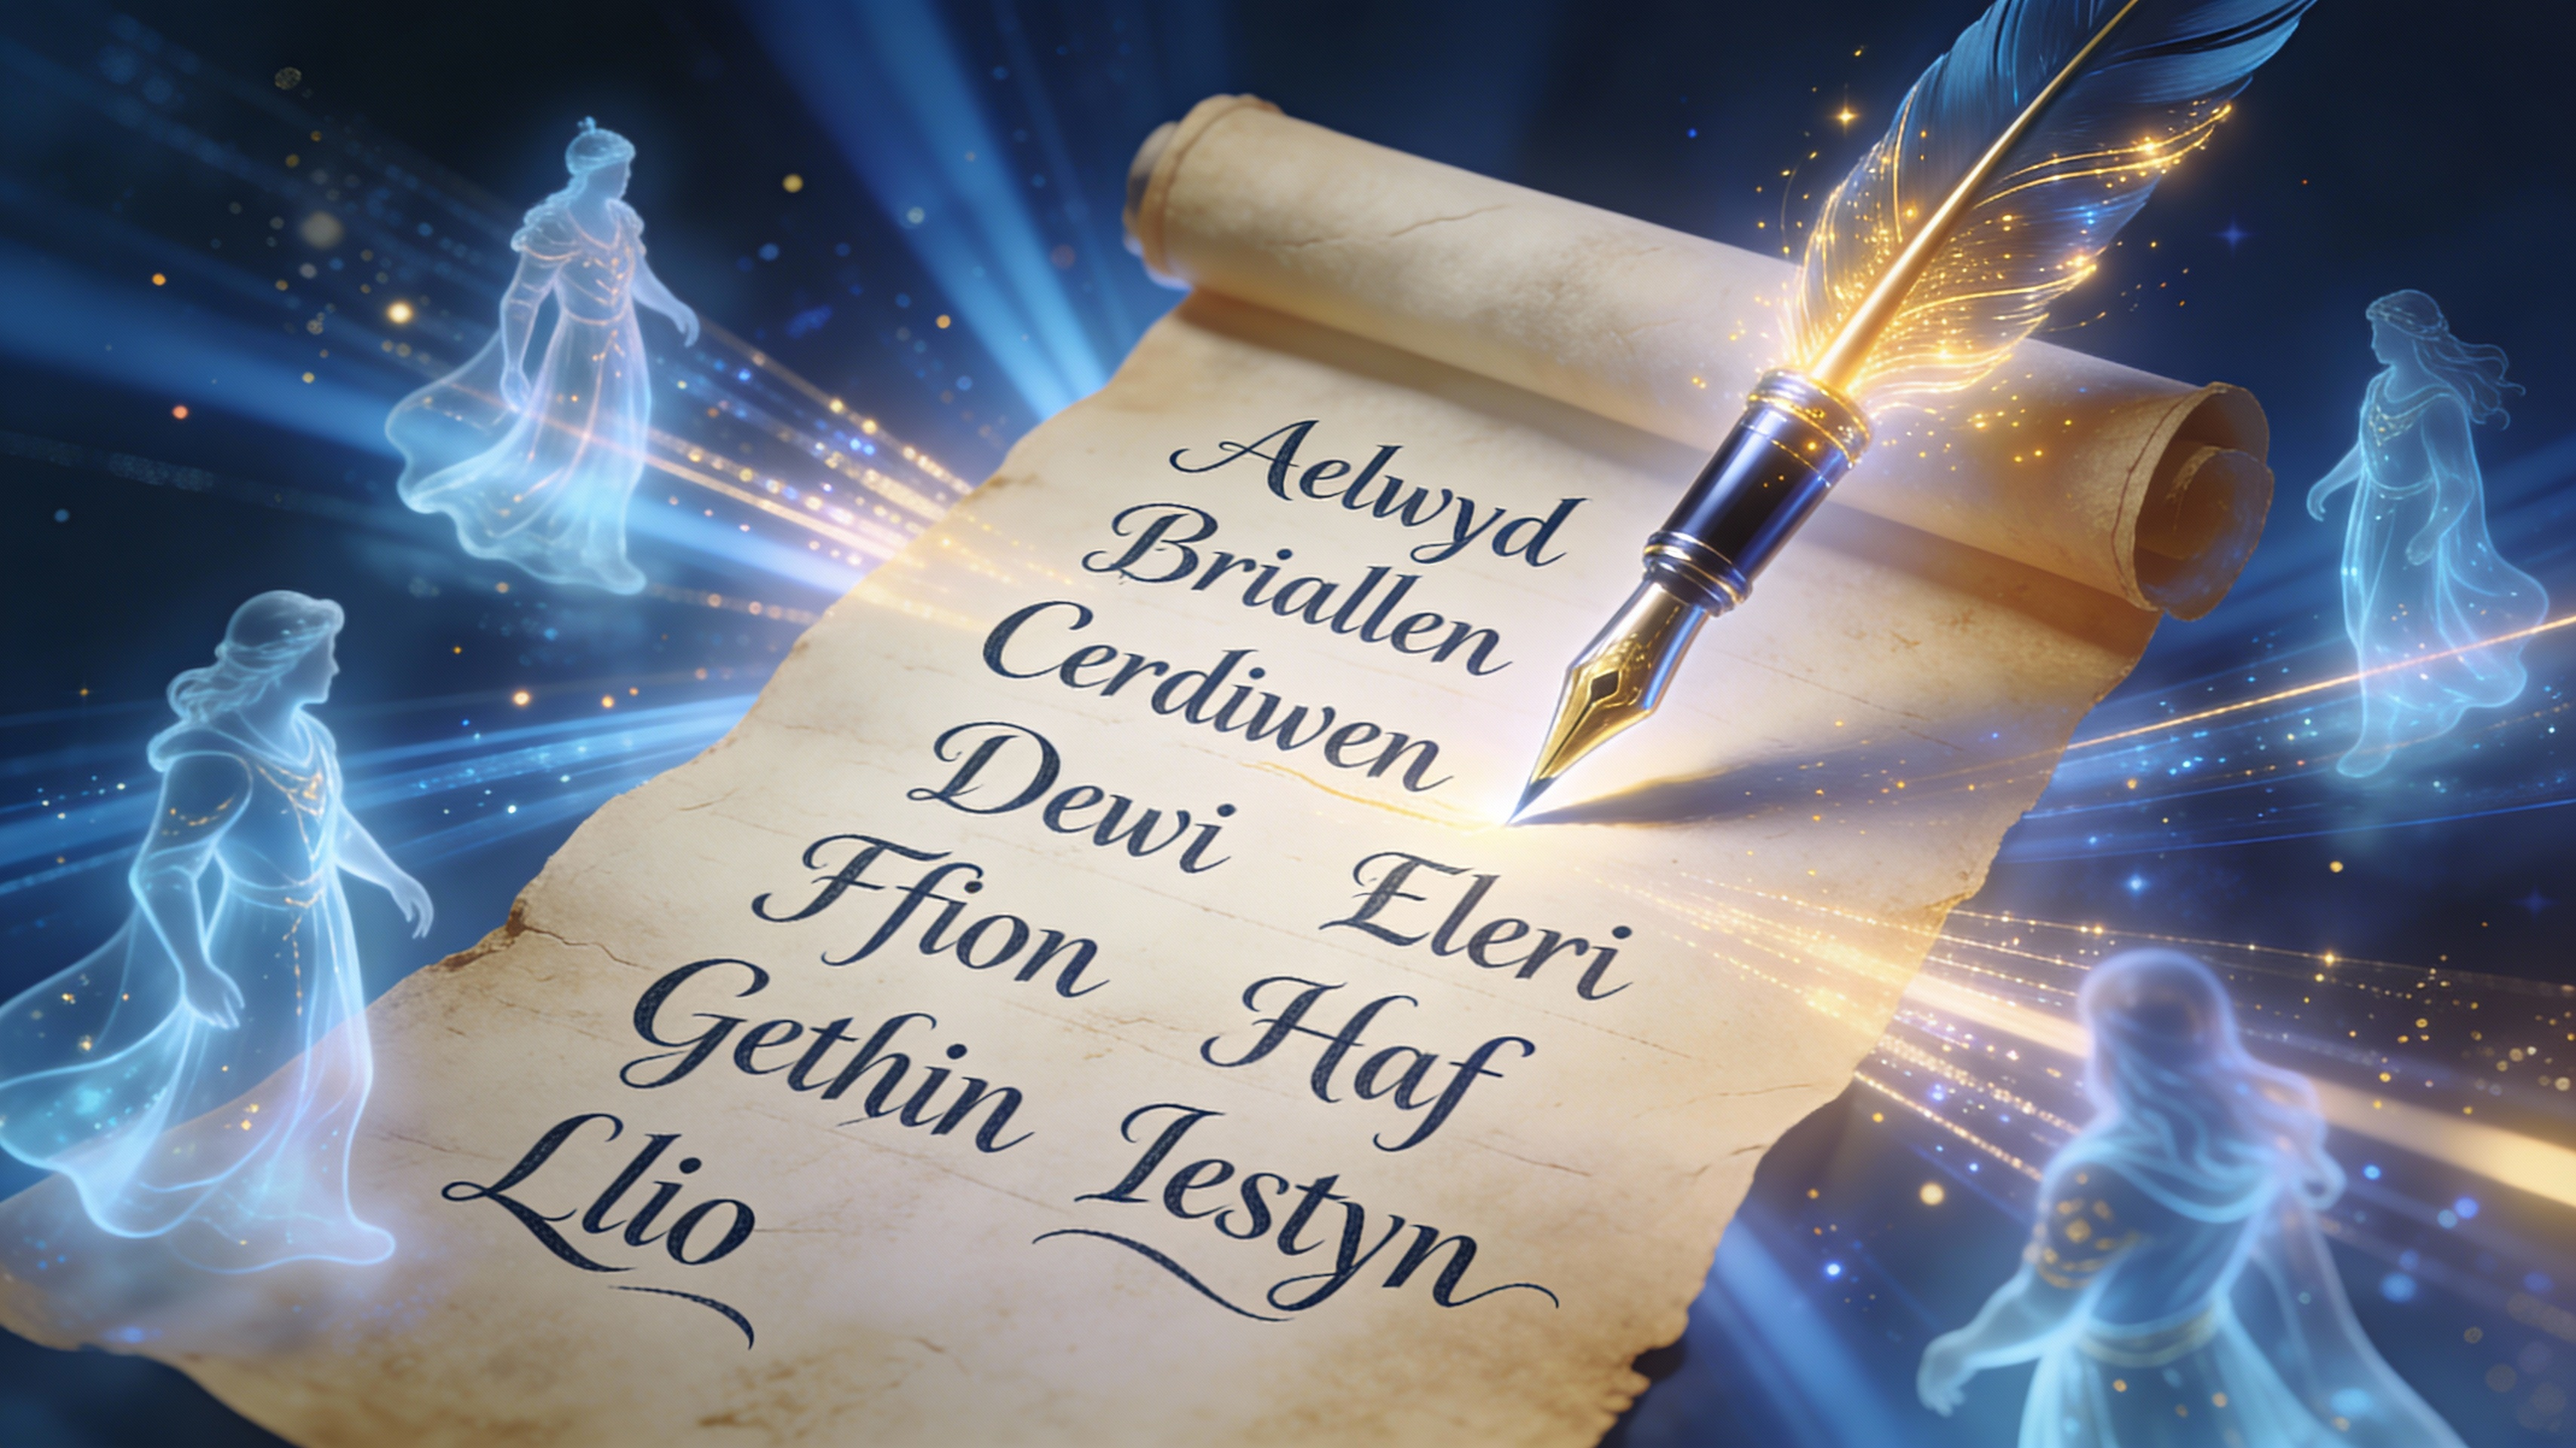 Aelwyd
Briallen
Cerdiwen
Dewi
Eleri
Ffion
Haf
Gethin
Iestyn
Llio